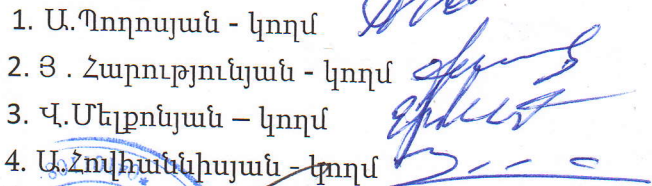 1. Ա.Պողոսյան - կողմ
2. Յ . Հարությունյան - կողմ
3. Վ.Մելքոնյան – կողմ
4. Ա.Հովհաննիսյան - կողմ